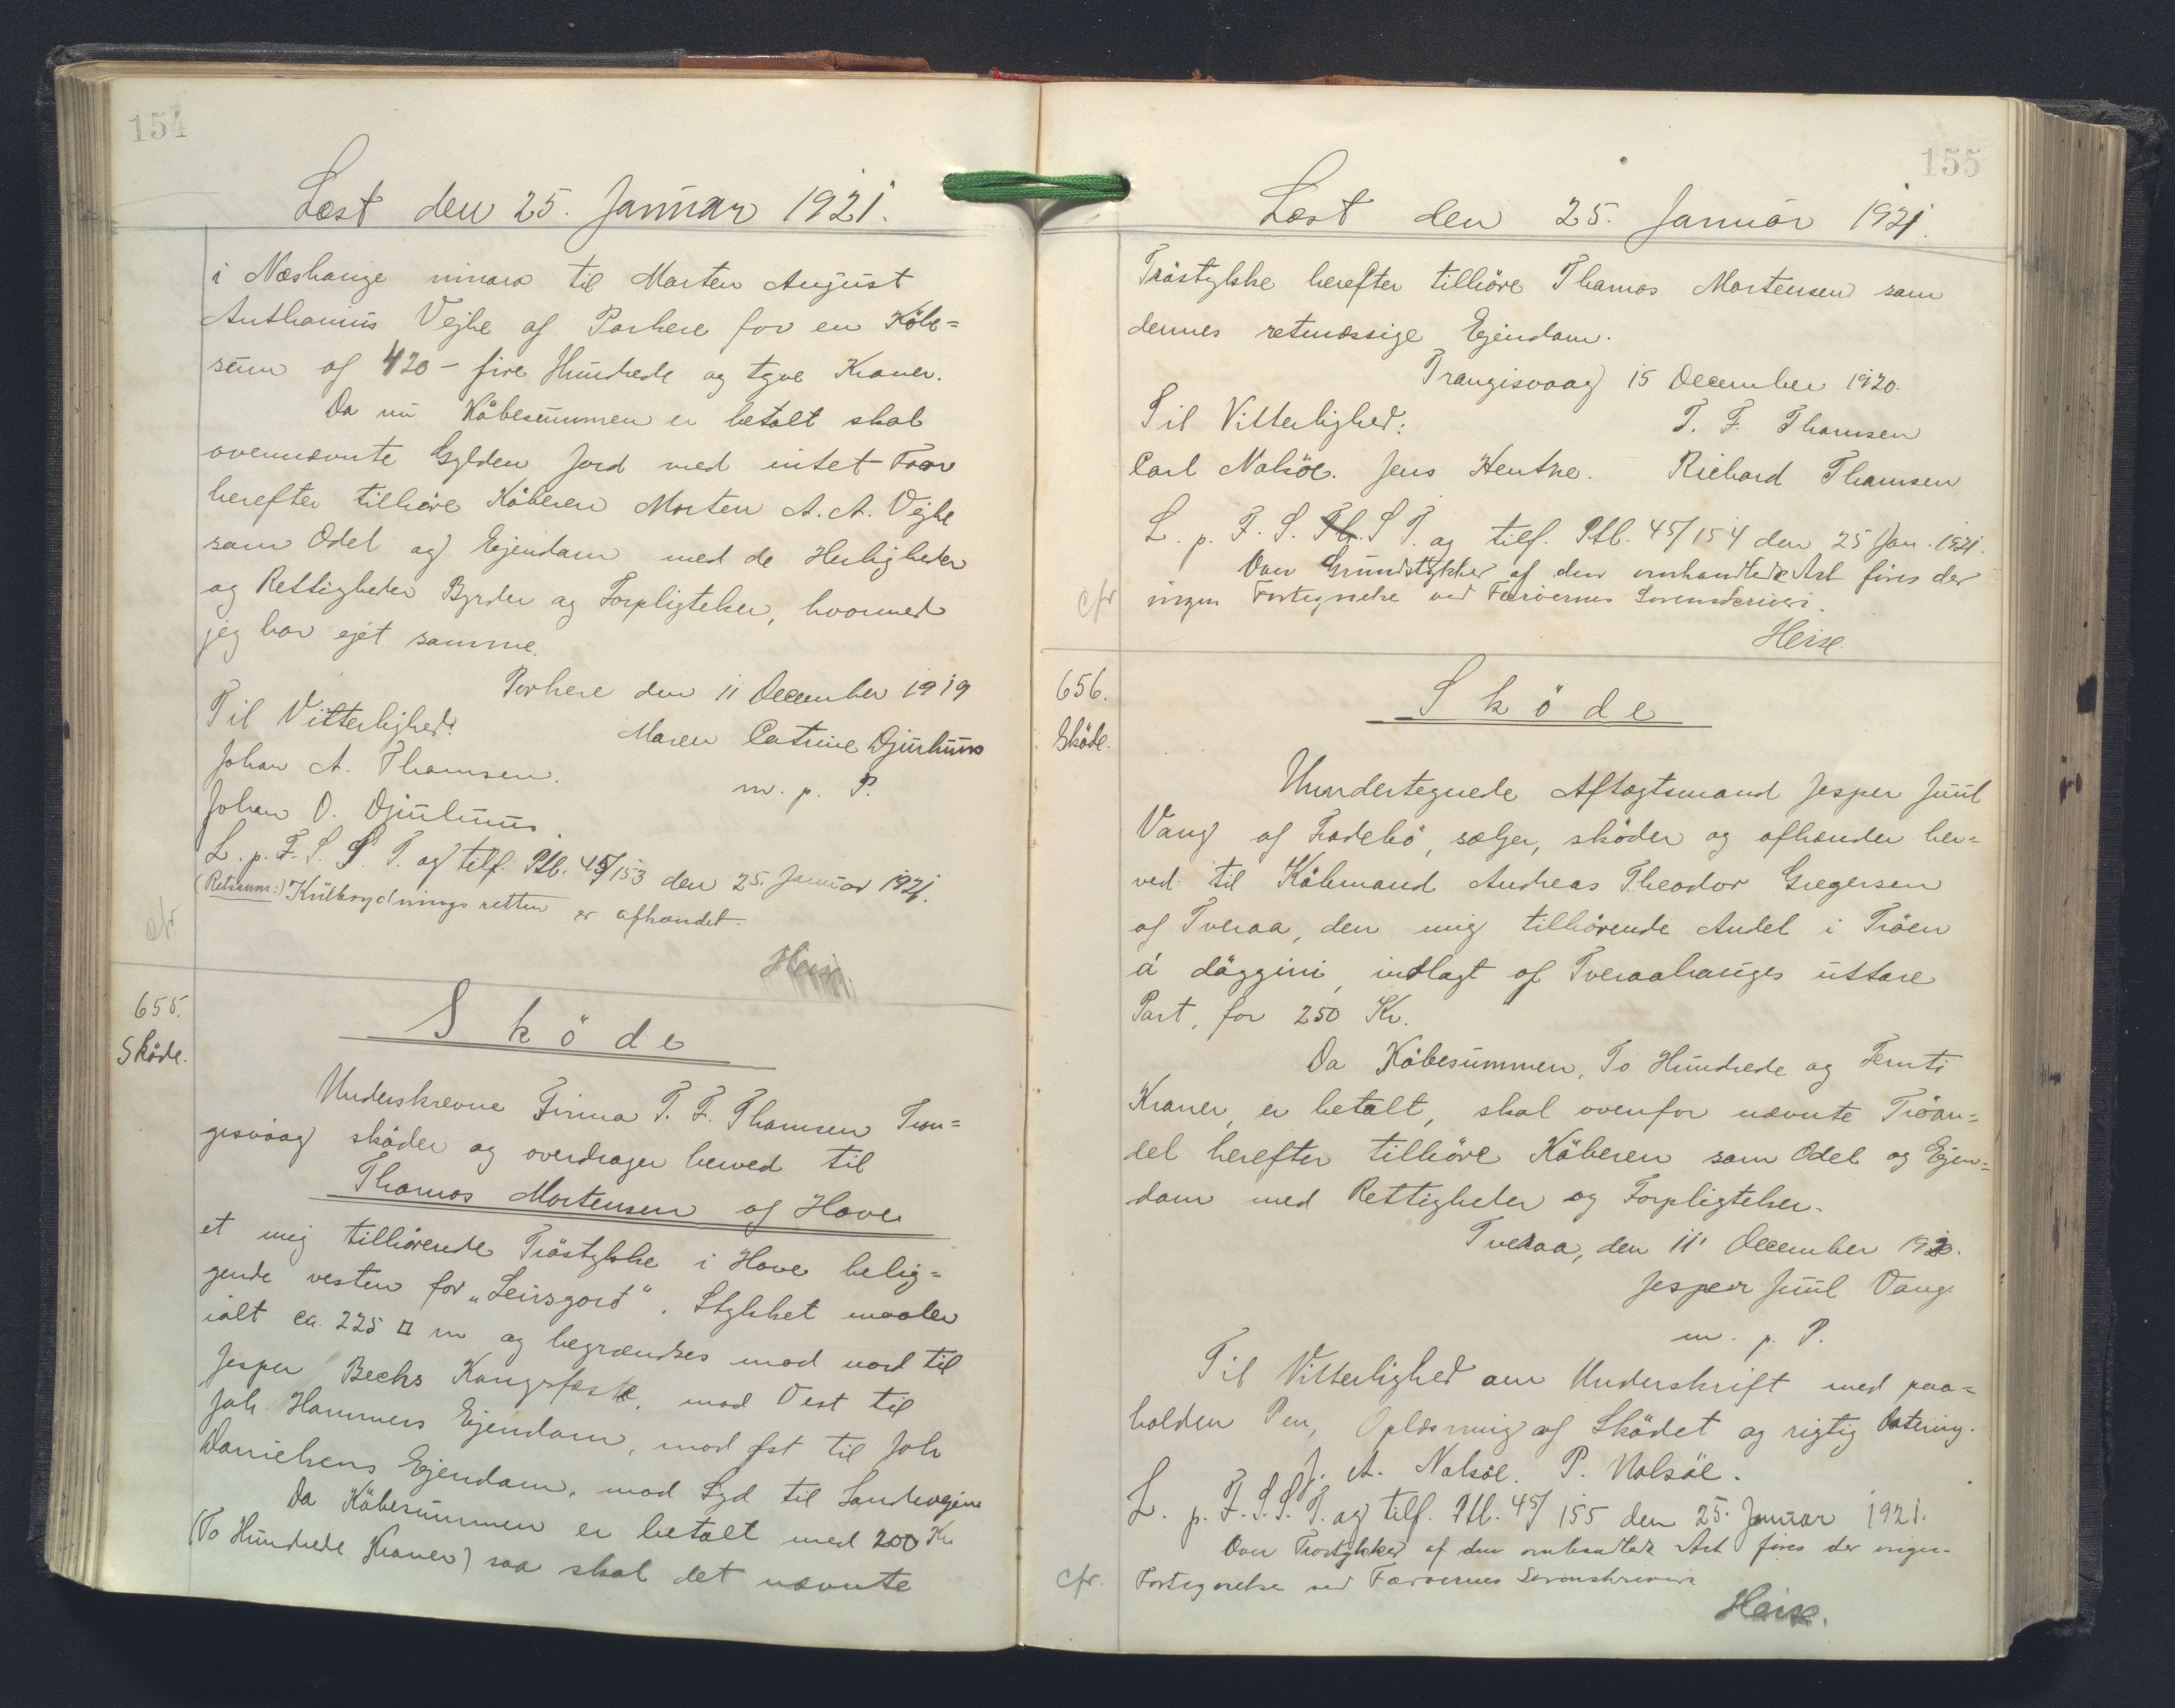 154
Læst den 25. Januar 1921.
i Næshauge minara til Morten August
Anthonius Vejhe af Porkere for en Købe=
sum af 420 - fire Hundrede og tyve Kroner.
Da nu Købesummen er betalt skal
ovennævnte Gylden Jord med intet Faar
herefter tilhöre Köberen Morten A. A. Vejhe
som Odel og Ejendom med de Herligheder
og Rettigheder Byrder og Forpligtelser, hvormed
jeg har ejet samme.
Porkere den 11 December 1919
Til Vitterlighed:
Maren Catrine Djurhuus
Johan A. Thomsen.
m. p. P.
Johan O. Djurhuus.
L. p. F. S. S. T. og tilf. Ptb. 45/153 den 25. Januar 1921.
(Retsanm:) Kulbrydningsretten er afhændet.
cfr
Heise.
655.
Sköde.
Sköde
Underskrevne Firma T. F. Thomsen Tron=
gisvaag sköder og overdrager herved til
Thomas Mortensen af Hove
et mig tilhörende Tröstykke i Hove belig=
gende vesten for "Leirsgord". Stykket maaler
ialt ca. 225 □ m og begrændses mod nord til
Jesper Bechs Kongsfæste, mod Vest til
Joh Hammers Ejendom, mod Øst til Joh
Danielsens Ejendom, mod Syd til Landevejen
Da Köbesummen er betalt med 200 Kr
(To Hundrede Kroner) saa skal det nævnte
155
Læst den 25. Januar 1921.
Tröstykke herefter tilhöre Thomas Mortensen som
dennes retmæssige Ejendom.
Trangisvaag 15 December 1920.
Til Vitterlighed:
T. F. Thomsen
Carl Nolsöe. Jens Hentze. Richard Thomsen
L. p. F. S. S T. og tilf. Ptb. 45/154 den 25 Jan. 1921.
Over Grundstykker af den omhandlede Art föres der
cfr ingen Fortegnelse ved Færöernes Sorenskriveri.
Heise.
656.
Sköde.
Sköde
Undertegnede Aftægtsmand Jesper Juul
Vang af Frodebö, sælger, sköder og afhænder her=
ved til Købmand Andreas Theodor Gregersen
af Tveraa, den mig tilhörende Andel i Tröen
á döggini, indlagt af Tveraahauges uttare
Part, for 250 Kr.
Da Köbesummen, To Hundrede og Femti
Kroner, er betalt, skal ovenfor nævnte Tröan=
del herefter tilhöre Köberen som Odel og Ejen=
dom med Rettigheder og Forpligtelser.
Tveraa, den 11' December 1920.
Jesper Juul Vang.
m. p. P.
Til Vitterlighed om Underskrift med paa=
holden Pen, Oplæsning af Skødet og rigtig Datering.
J. A. Nolsöe. P. Nolsöe.
L. p. F. S. S. T. og tilf. Ptb. 45/155 den 25. Januar 1921.
Over Trøstykker af den omhandlede Art föres der ingen
cfr. Fortegnelse ved Færöernes Sorenskriveri
Heise.